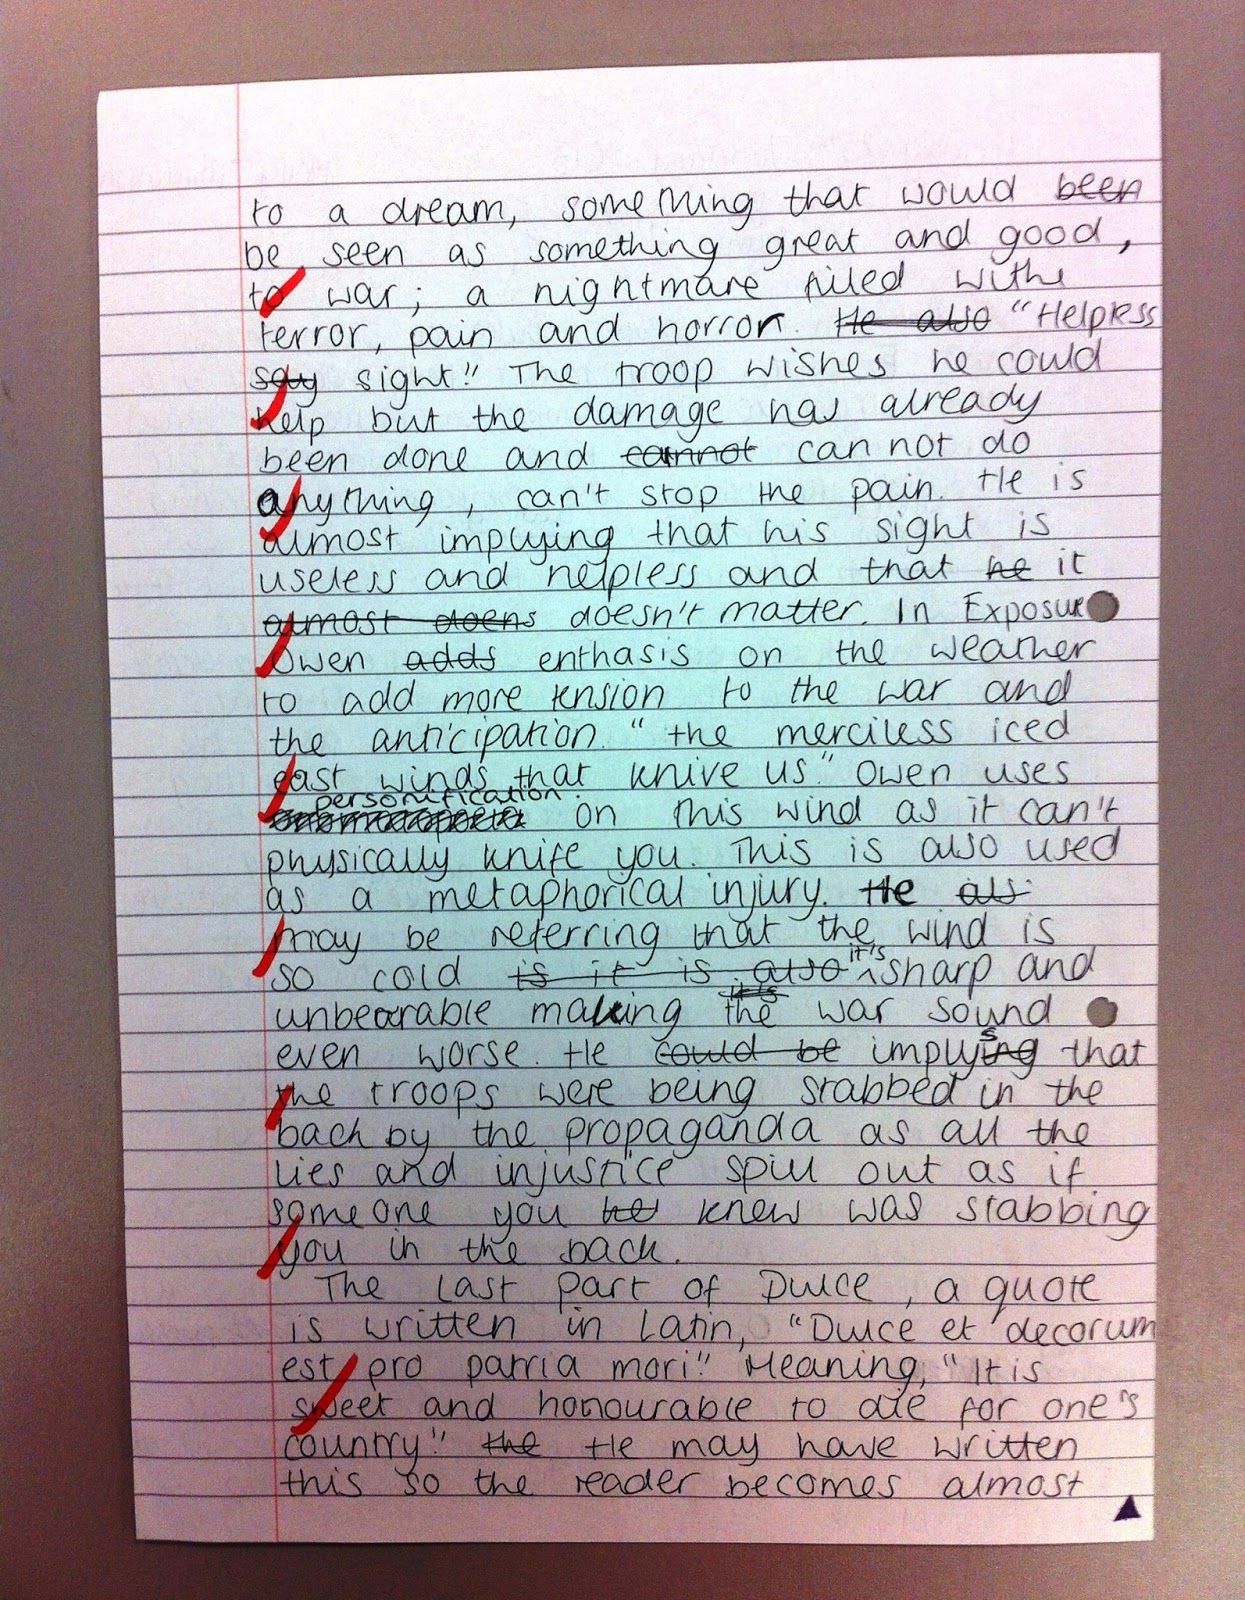 to a dream, something that would been
be seen as something great and good,
to war; a nightmare filled withe
terror, pain and horror. He also "Helpless
say sight." The troop wishes he could
help but the damage has already
been done and cannot can not do
anything, can't stop the pain. He is
almost implying that his sight is
useless and helpless and that he it
almost doens doesn't matter. In Exposure
Owen adds enthasis on the weather
to add more tension to the war and
the anticipation. "the merciless iced
east winds that knive us." Owen uses
personification
onomatopoeia on this wind as it can't
physically knife you. This is also used
as a metaphorical injury. He als
may be referring that the wind is
so cold is it is also it's sharp and
unbearable making the it's war sound
even worse. He could be implysing that
the troops were being stabbed in the
back by the propaganda as all the
lies and injustice spill out as if
someone you he knew was stabbing
you in the back.
The last part of Dulce, a quote
is written in Latin, "Dulce et decorum
est pro patria mori." Meaning, "It is
sweet and honourable to die for one's
country." the He may have written
this so the reader becomes almost